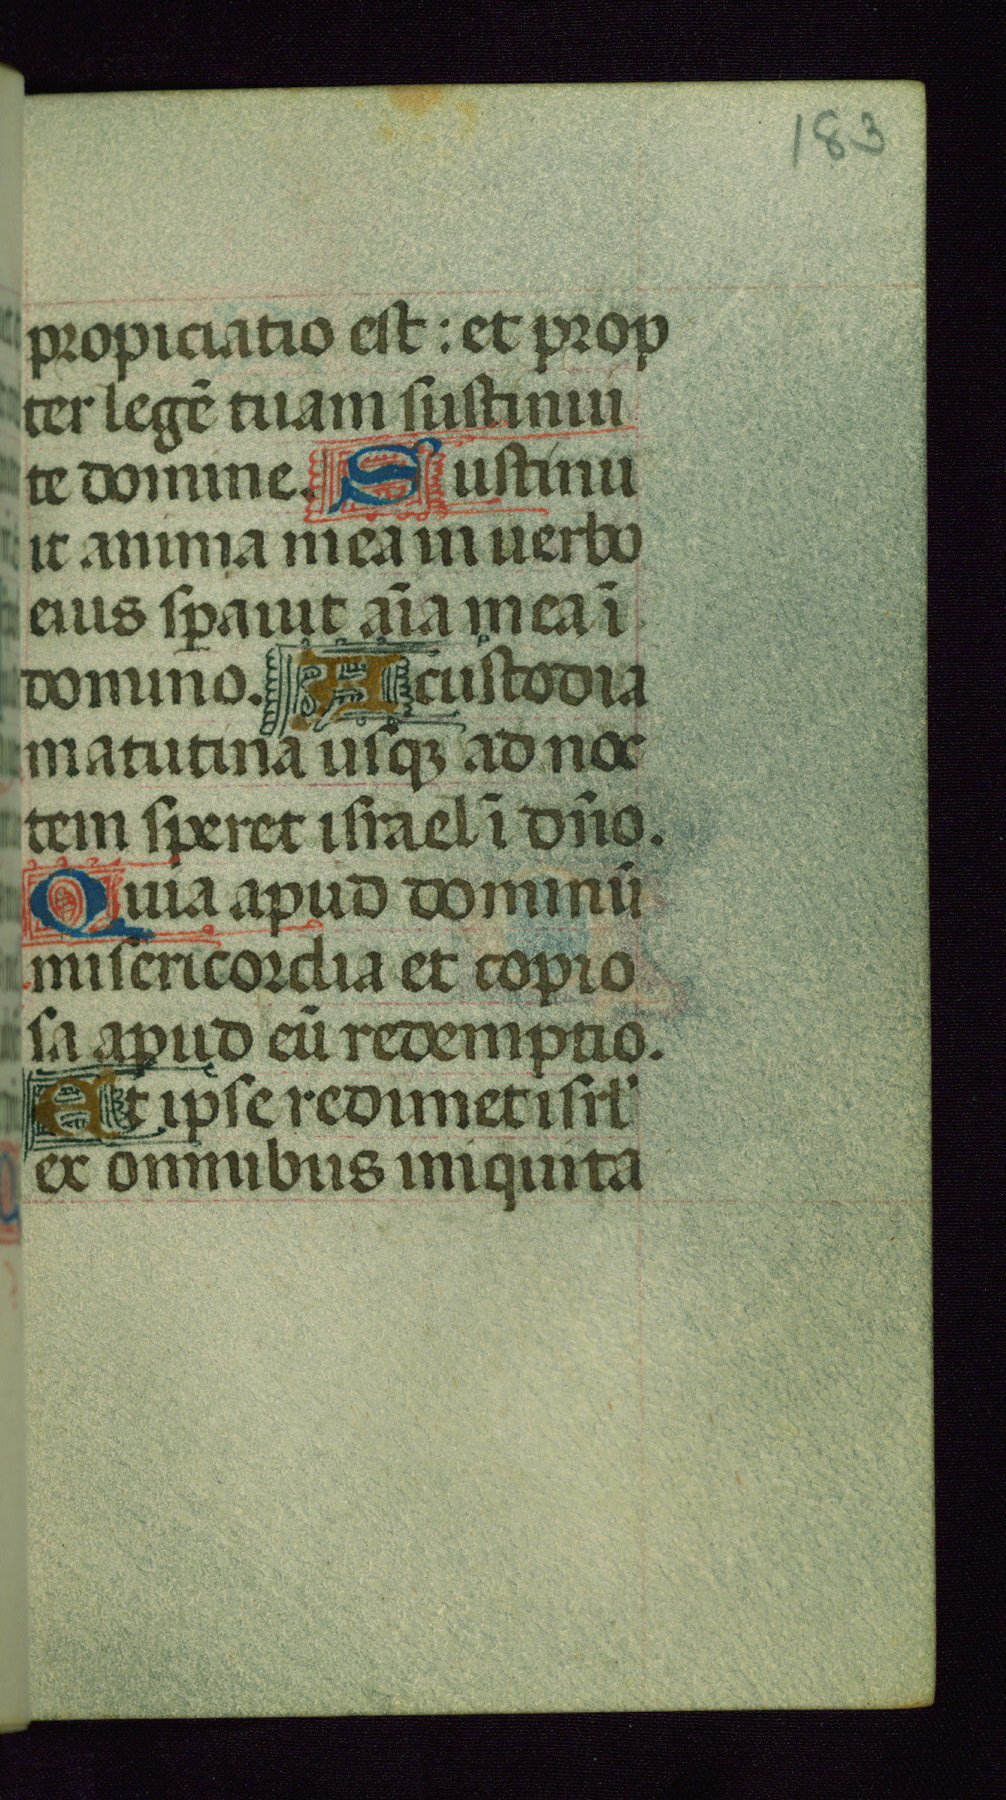 183
propiciatio est : et prop
ter legē tuam sustinui
te domine. Sustinu
it anima mea in uerbo
eius sꝑauit aīa mea ī
domino. A custodia
matutina usqꝫ ad noc
tem speret israel ī dño.
Quia apud dominū
misericordia et copio
sa apud eū redemptio.
Et ipse redimet isrl'
ex omnibus iniquita